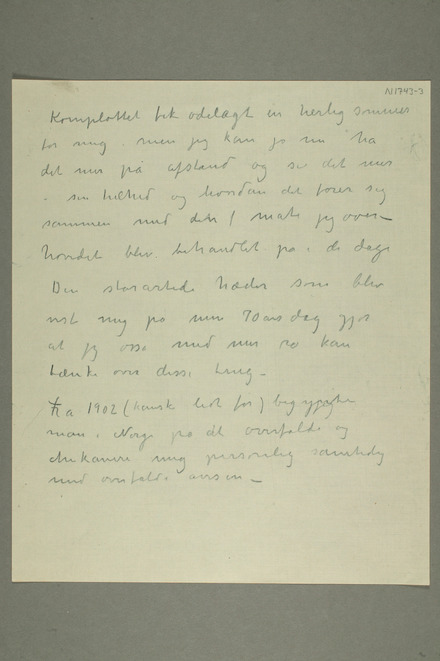 N 1743-3
Komplottet fik ødelægt en herlig sommer
for mig. men jeg kan jo nu ha
det mer på afstand og se det mer
i sin helhed og hvordan det føier sig
sammen med den måte jeg over-
hovedet blev behandlet på i de dage
Den storartede hæder som blev
vist mig på min 70 års dag gjør
at jeg også med mer ro kan
tænke over disse ting –
Fra 1902 (kanske lidt før) begynte
man i Norge på at overfalde og
chikanere mig personlig samtidig
med